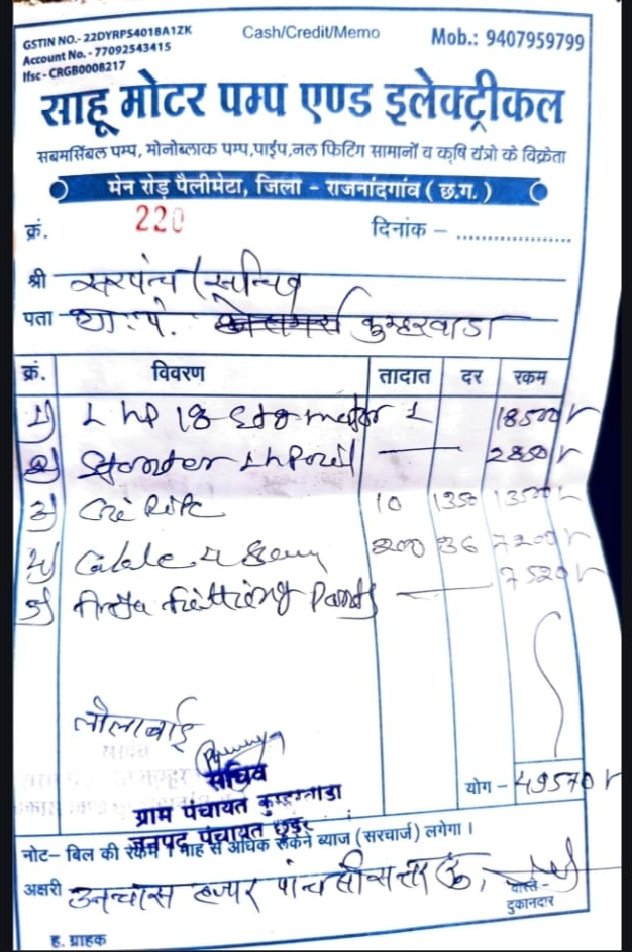 GSTIN NO.- 22DYRPS4018A1ZK
Account No. - 77092543415
Ifsc - CRGB0008217
Cash/Credit/Memo
Mob.: 9407959799
साहू मोटर पम्प एण्ड इलेक्ट्रीकल
सबमर्सिबल पम्प, मौनोब्लाक पम्प,पाईप,नल फिटिंग सामानों व कृषि यंत्रो के विक्रेता
मेन रोड़ पैलीमेटा, जिला - राजनांदगांव ( छ.ग. )
क्रं. 220 दिनांक -
श्री सरपंच / सचिव
पता ग्रा. पं. कुम्हरवाडा
क्रं. विवरण तादात दर रकम
1) 1 HP 18 Stg motor 1 18500
2) Starter 1 HP 2850
3) 10 1350 13500
4) Cable 200 36 7200
5) fitting 7520
लीलाबाई
सचिव
ग्राम पंचायत कुम्हरवाडा
जनपद पंचायत
योग - 49570
नोट- बिल की रकम 1 माह से अधिक रूकने ब्याज (सरचार्ज) लगेगा ।
अक्षरी उनचास हजार पांच सौ सत्तर रू.
वास्ते -
दुकानदार
ह. ग्राहक